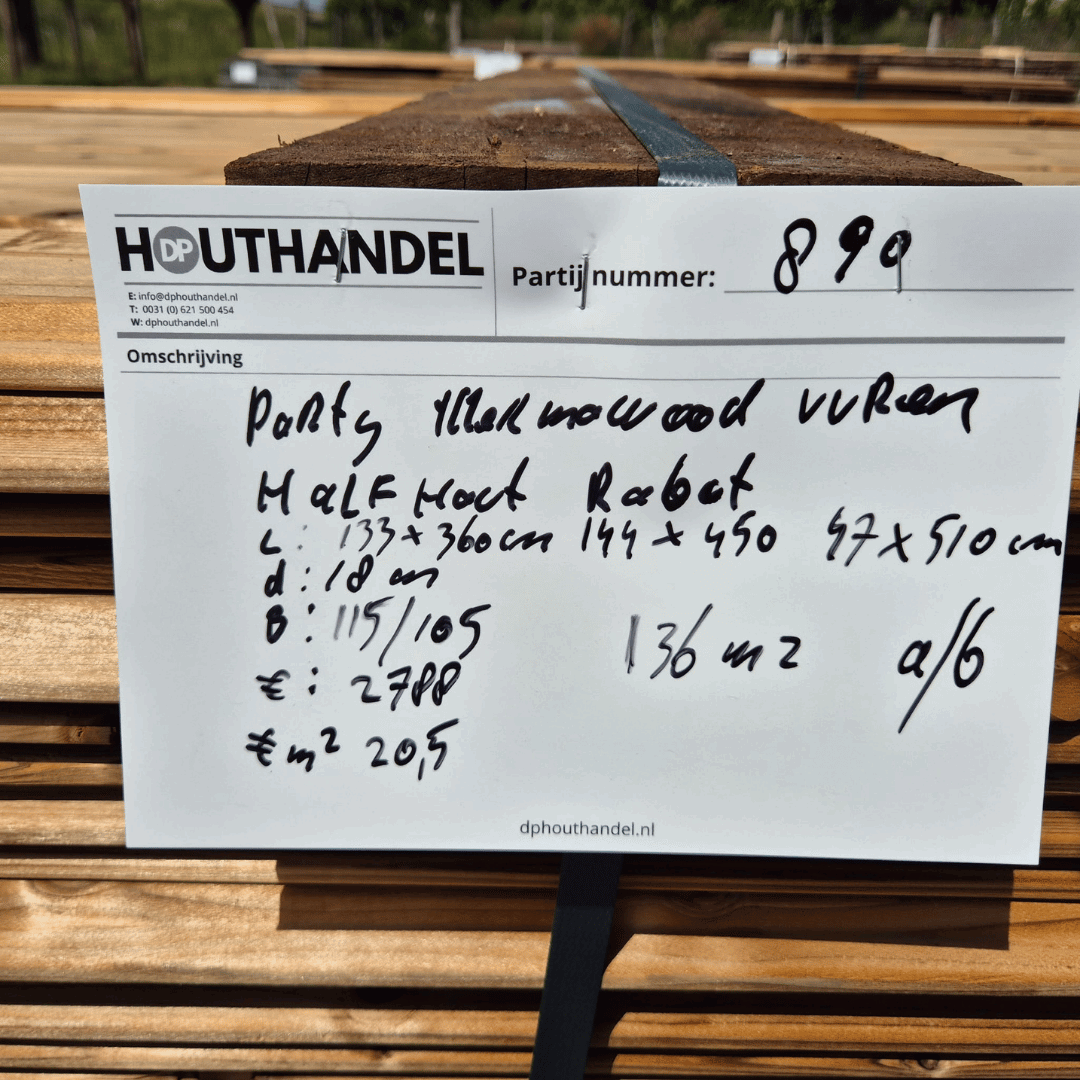 HOUTHANDEL
DP
E: info@dphouthandel.nl
T: 0031 (0) 621 500 454
W: dphouthandel.nl
Partij nummer: 890
Omschrijving
Party thermowood vuren
Half Hout Rabat
L: 133 x 360 cm 144 x 450 47 x 510 cm
d: 18 m
B: 115/105
136 m2 a/b
€: 2788
€ m² 20,5
dphouthandel.nl